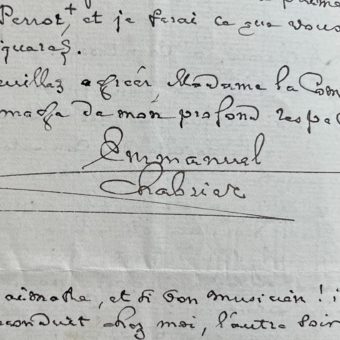 Perrot + et je ferai ce que vous
Veuillez agréer, Madame la Com
de mon profond respe
Emmanuel
Chabrier
aimable, et si bon musicien ! i
econduit chez moi, l'autre soir